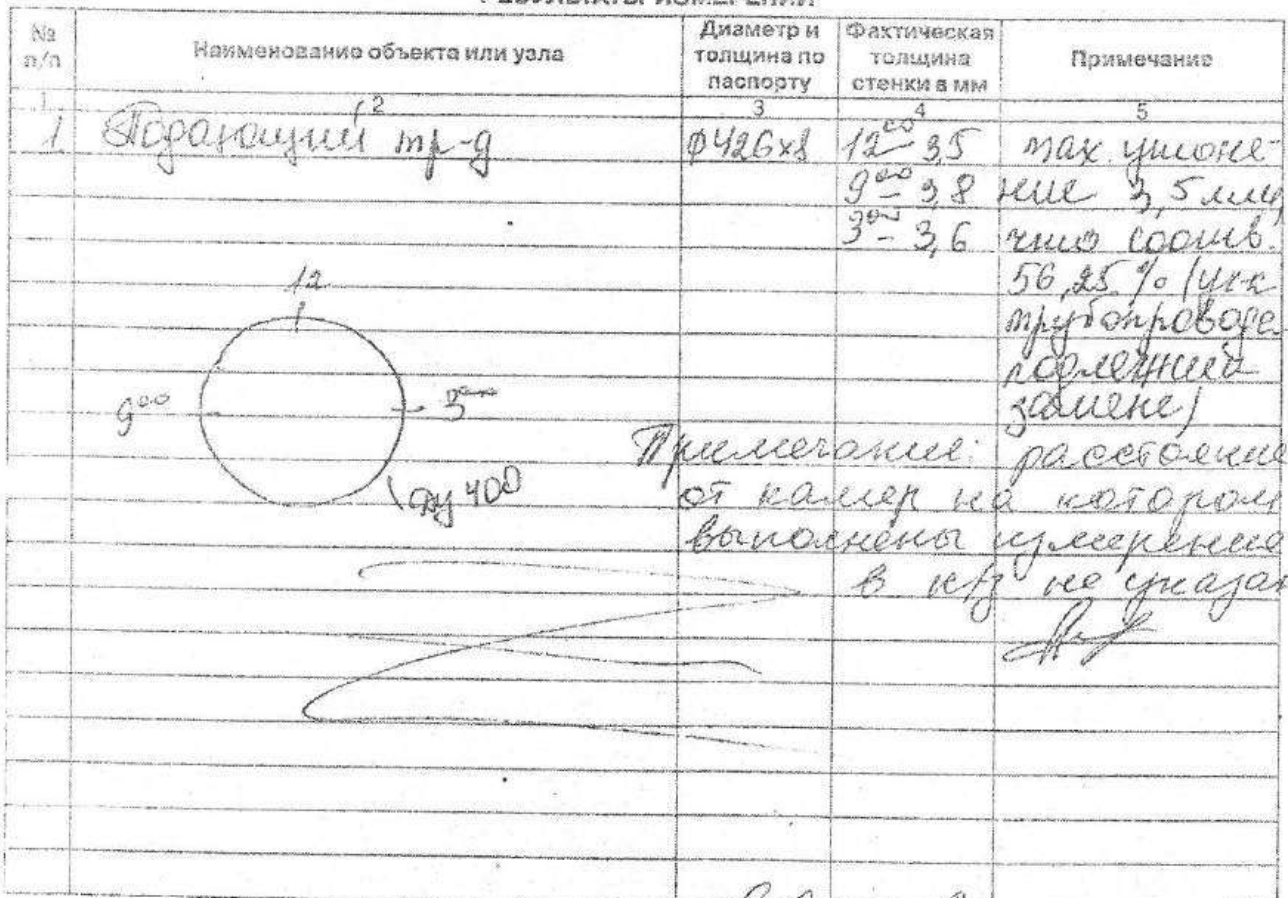 РЕЗУЛЬТАТЫ ИЗМЕРЕНИЙ
№ п/п
Наименование объекта или узла
Диаметр и толщина по паспорту
Фактическая толщина стенки в мм
Примечание
1 2 3 4 5
1 Подающий тр-д ф426х8 12⁰⁰ - 3,5 max утоне-
9⁰⁰ - 3,8 ние 3,5 мм,
3⁰⁰ - 3,6 что соотв.
56,25 %
трубопровода
подлежит
замене)
12
9⁰⁰ 3⁰⁰
Ду 400
Примечание: расстояние
от камер на котором
выполнены измерения
в н/з не указан